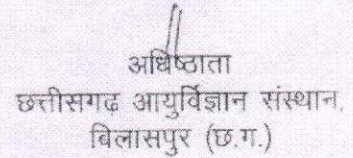 अधिष्ठाता
छत्तीसगढ आयुर्विज्ञान संस्थान,
बिलासपुर (छ.ग.)